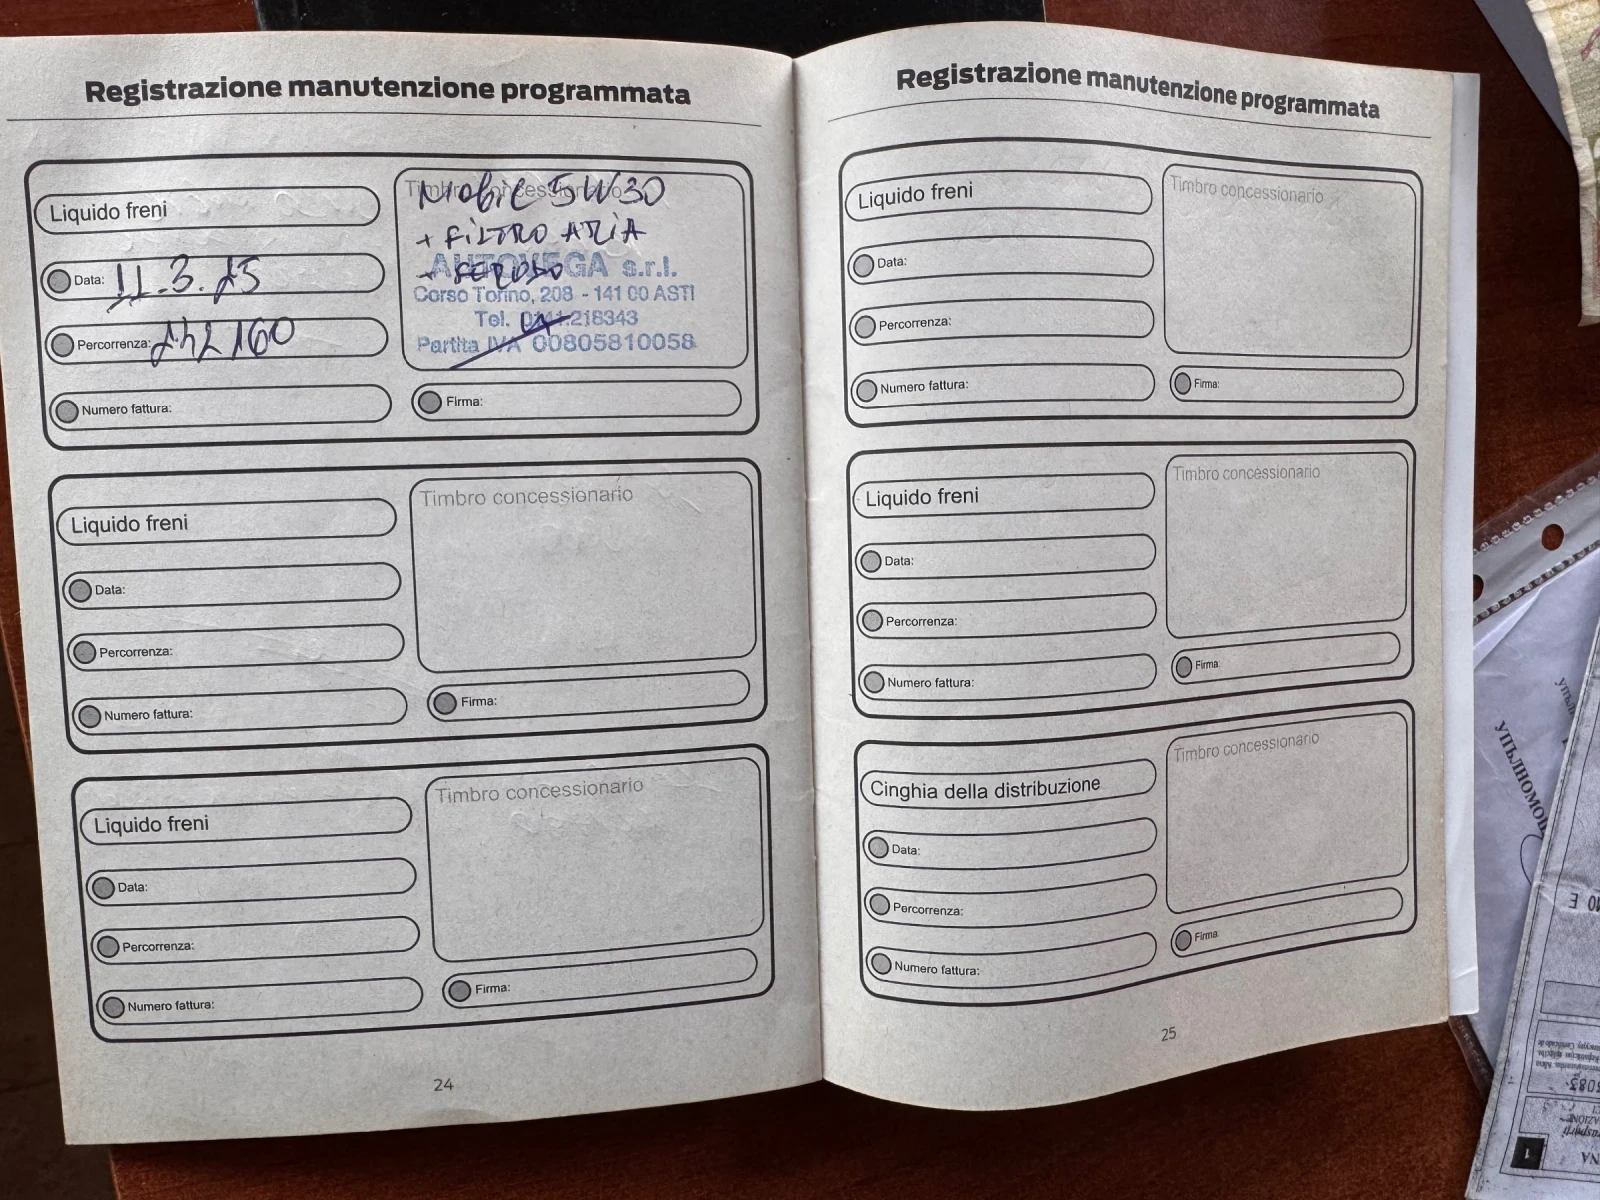 Registrazione manutenzione programmata
Liquido freni
Data: 11.3.25
Percorrenza:
Numero fattura:
Timbro concessionario
Mobil 5W30
+ FILTRO ARIA
+
AUTOVEGA s.r.l.
Corso Torino, 208 - 141 00 ASTI
Tel. 0141.218343
Partita IVA 00805810058
Firma:
Liquido freni
Data:
Percorrenza:
Numero fattura:
Timbro concessionario
Firma:
Liquido freni
Data:
Percorrenza:
Numero fattura:
Timbro concessionario
Firma:
24
Registrazione manutenzione programmata
Liquido freni
Data:
Percorrenza:
Numero fattura:
Timbro concessionario
Firma:
Liquido freni
Data:
Percorrenza:
Numero fattura:
Timbro concessionario
Firma:
Cinghia della distribuzione
Data:
Percorrenza:
Numero fattura:
Timbro concessionario
Firma:
25